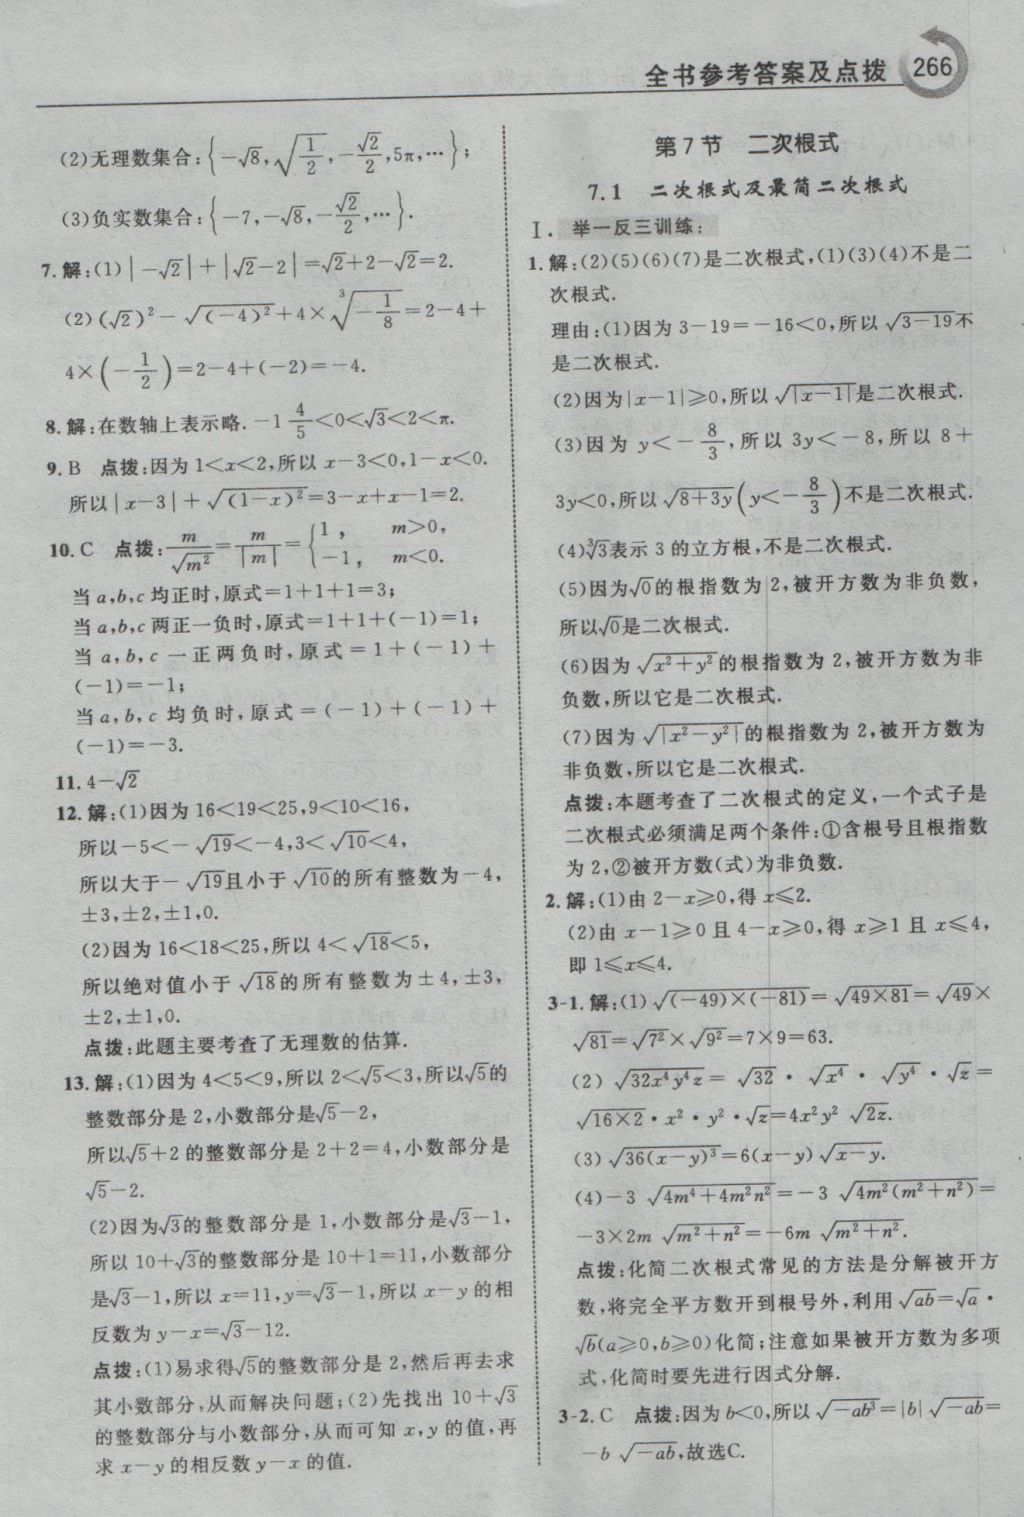 全书参考答案及点拨 266
(2)无理数集合:{-√8,√(1/2),-√2/2,5π,…};
(3)负实数集合:{-7,-√8,-√2/2,…}.
7.解:(1)|-√2|+|√2-2|=√2+2-√2=2.
(2)(√2)²-√((-4)²)+4×∛(-1/8)=2-4+
4×(-1/2)=2-4+(-2)=-4.
8.解:在数轴上表示略.-1 4/5<0<√3<2<π.
9.B 点拨:因为1<x<2,所以x-3<0,1-x<0.
所以|x-3|+√((1-x)²)=3-x+x-1=2.
10.C 点拨:m/√(m²)=m/|m|={1, m>0,
-1, m<0.
当a,b,c均正时,原式=1+1+1=3;
当a,b,c两正一负时,原式=1+1+(-1)=1;
当a,b,c一正两负时,原式=1+(-1)+
(-1)=-1;
当a,b,c均负时,原式=(-1)+(-1)+
(-1)=-3.
11.4-√2
12.解:(1)因为16<19<25,9<10<16,
所以-5<-√19<-4,3<√10<4,
所以大于-√19且小于√10的所有整数为-4,
±3,±2,±1,0.
(2)因为16<18<25,所以4<√18<5,
所以绝对值小于√18的所有整数为±4,±3,
±2,±1,0.
点拨:此题主要考查了无理数的估算.
13.解:(1)因为4<5<9,所以2<√5<3,所以√5的
整数部分是2,小数部分是√5-2,
所以√5+2的整数部分是2+2=4,小数部分是
√5-2.
(2)因为√3的整数部分是1,小数部分是√3-1,
所以10+√3的整数部分是10+1=11,小数部分
是√3-1,所以x=11,y=√3-1,所以x-y的相
反数为y-x=√3-12.
点拨:(1)易求得√5的整数部分是2,然后再去求
其小数部分,从而解决问题;(2)先找出10+√3
的整数部分与小数部分,从而可知x,y的值,再
求x-y的相反数y-x的值.
第7节 二次根式
7.1 二次根式及最简二次根式
Ⅰ. 举一反三训练:
1.解:(2)(5)(6)(7)是二次根式,(1)(3)(4)不是二
次根式.
理由:(1)因为3-19=-16<0,所以√(3-19)不
是二次根式.
(2)因为|x-1|≥0,所以√(|x-1|)是二次根式.
(3)因为y<-8/3,所以3y<-8,所以8+
3y<0,所以√(8+3y)(y<-8/3)不是二次根式.
(4)∛3表示3的立方根,不是二次根式.
(5)因为√0的根指数为2,被开方数为非负数,
所以√0是二次根式.
(6)因为√(x²+y²)的根指数为2,被开方数为非
负数,所以它是二次根式.
(7)因为√(|x²-y²|)的根指数为2,被开方数为
非负数,所以它是二次根式.
点拨:本题考查了二次根式的定义,一个式子是
二次根式必须满足两个条件:①含根号且根指数
为2,②被开方数(式)为非负数.
2.解:(1)由2-x≥0,得x≤2.
(2)由x-1≥0且4-x≥0,得x≥1且x≤4,
即1≤x≤4.
3-1.解:(1)√((-49)×(-81))=√(49×81)=√49×
√81=√(7²)×√(9²)=7×9=63.
(2)√(32x⁴y⁴z)=√32·√(x⁴)·√(y⁴)·√z=
√(16×2)·x²·y²·√z=4x²y²√(2z).
(3)√(36(x-y)³)=6(x-y)√(x-y).
(4)-3√(4m⁴+4m²n²)=-3√(4m²(m²+n²))=
-3×2m√(m²+n²)=-6m√(m²+n²).
点拨:化简二次根式常见的方法是分解被开方
数,将完全平方数开到根号外,利用√(ab)=√a·
√b(a≥0,b≥0)化简;注意如果被开方数为多项
式,化简时要先进行因式分解.
3-2.C 点拨:因为b<0,所以√(-ab³)=|b|√(-ab)=
-b√(-ab),故选C.